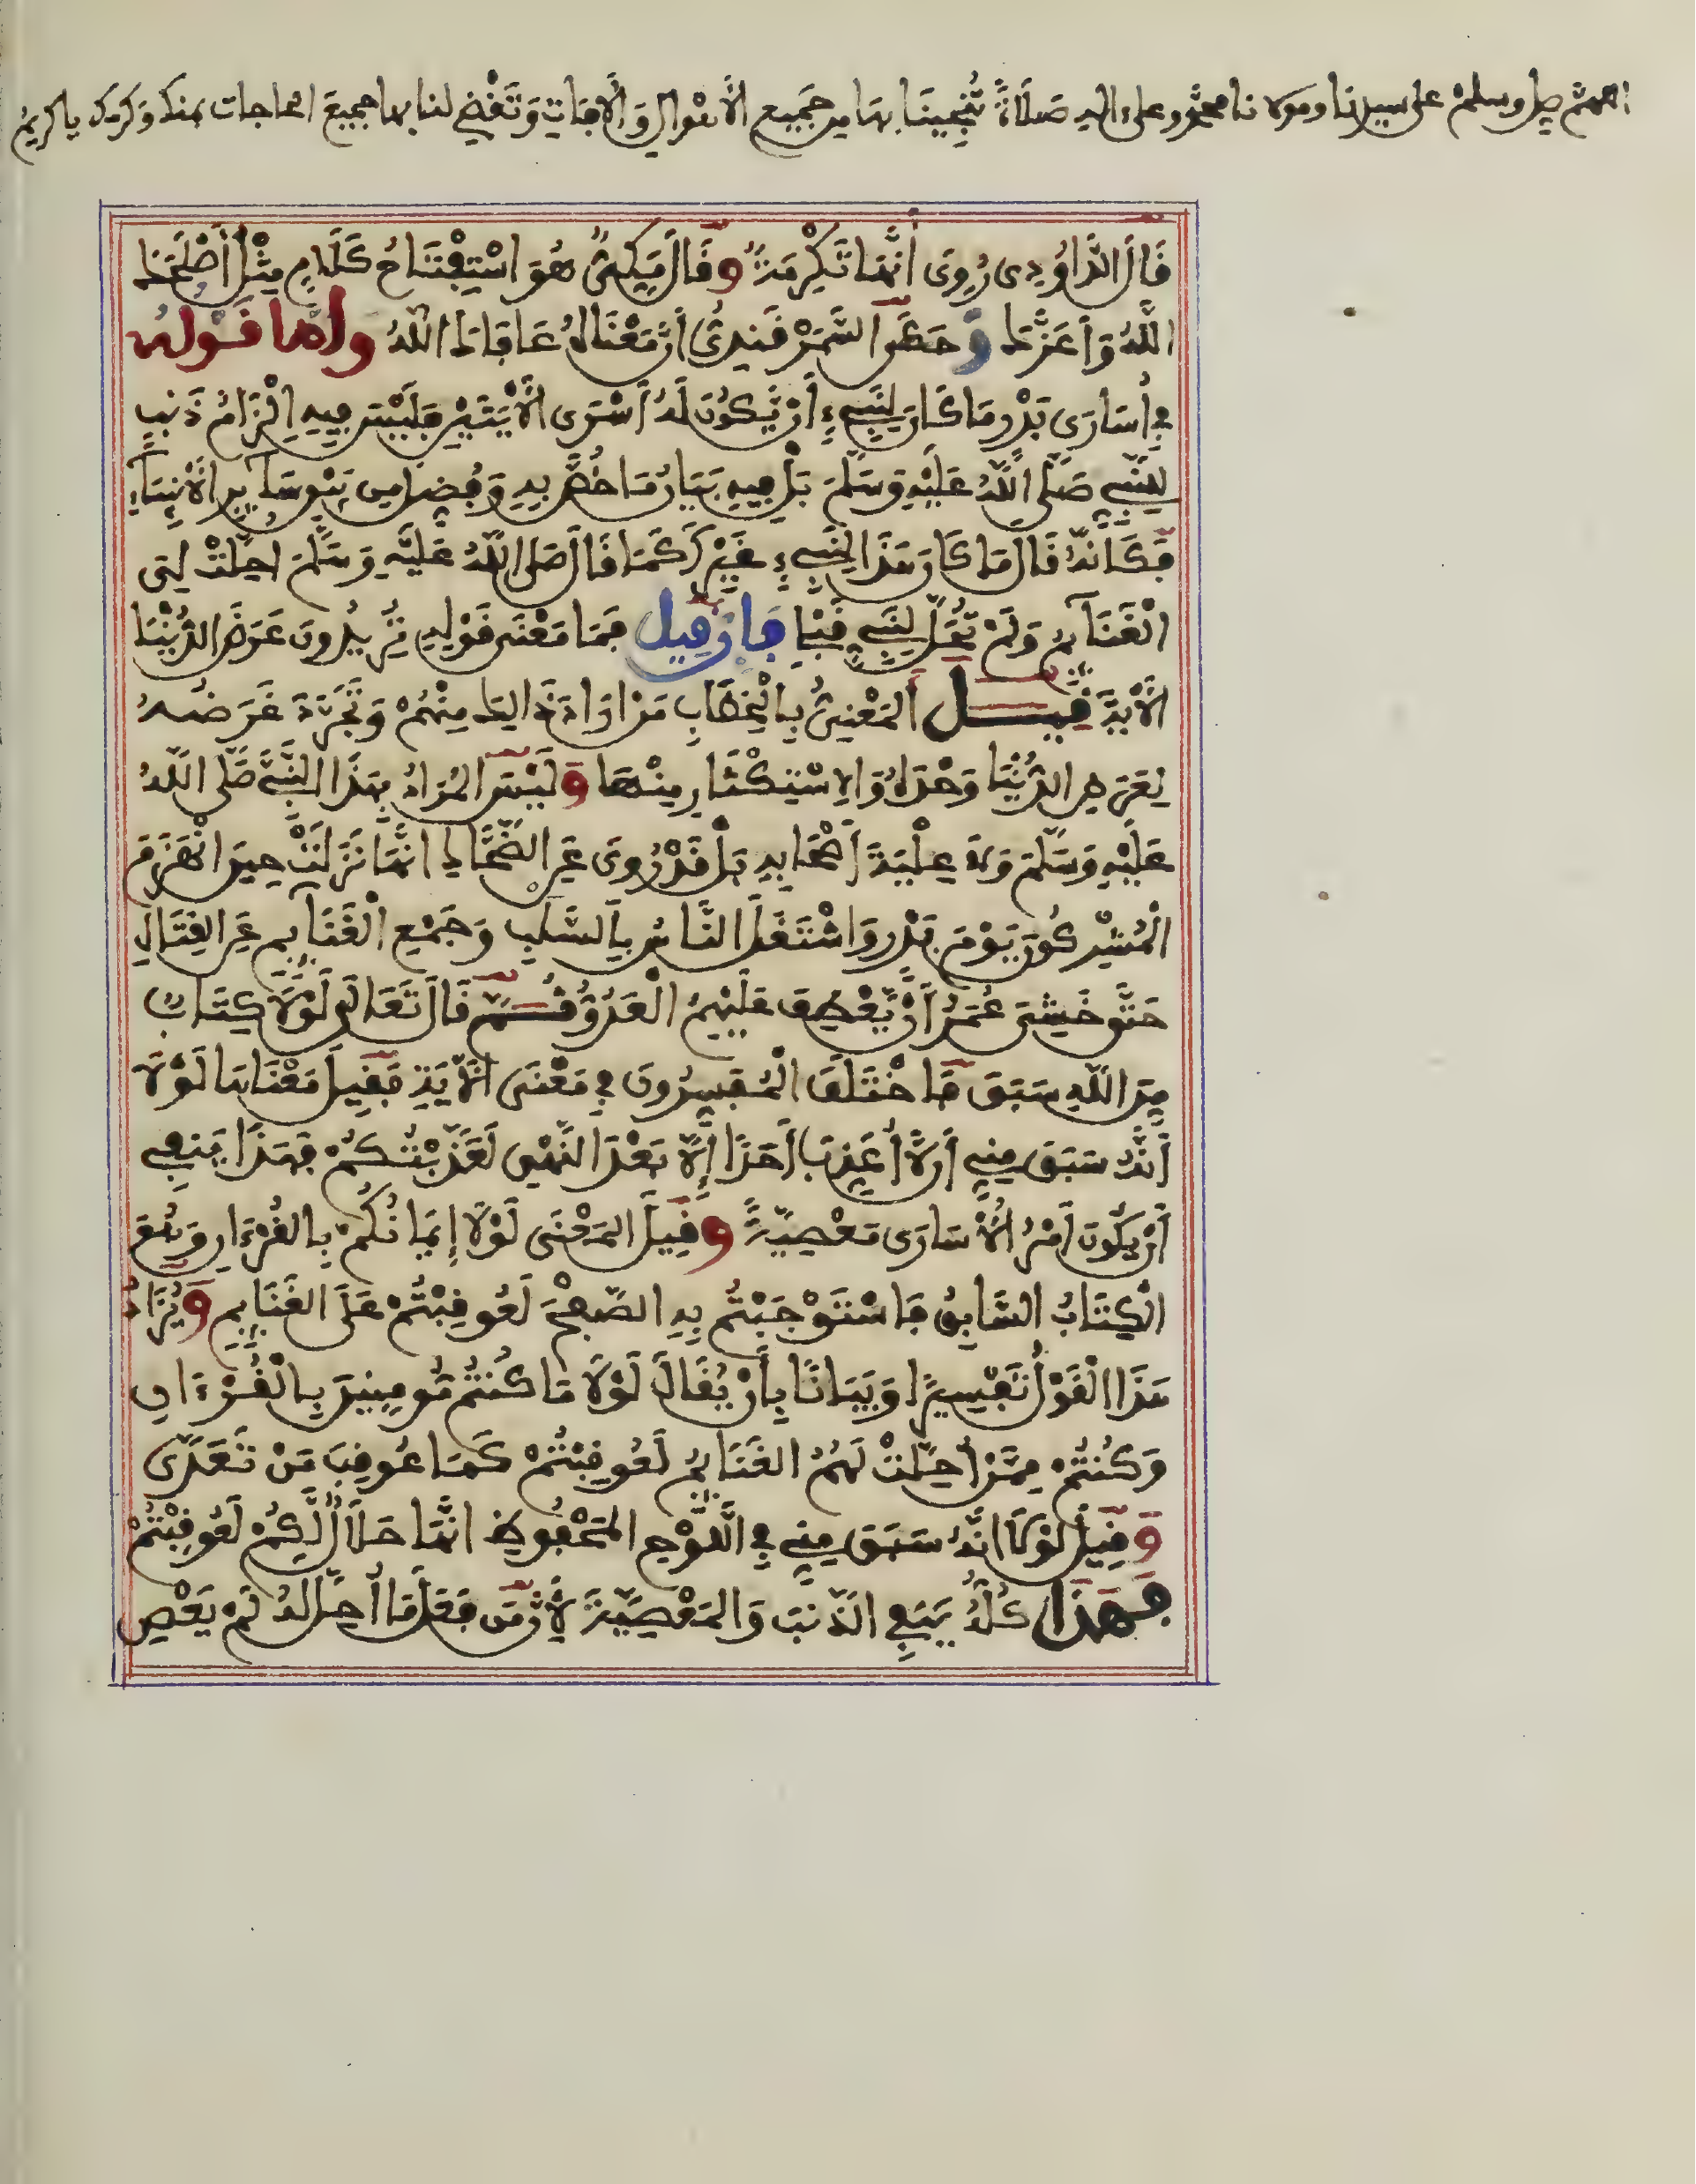 اللهم صل وسلم على سيدنا ومولانا محمد وعلى اله صَلَاةً تُنْجِينَا بِهَا مِن جَمِيعِ الْأَهْوَالِ وَالْآفَاتِ وَتَقْضِي لنا بها جميعَ الحاجات بمنك وكرمك يا كريمُ
قَالَ الدَّاوُدِي رُوِيَ أَنَّهَا تَكْرِمَةٌ وَقَالَ مَكِّيٌّ هُوَ اسْتِفْتَاحُ كَلَامٍ مِثْلُ أَصْلَحَكَ
اللَّهُ وَأَعَزَّكَ وَحَكَى السَّمَرْقَنْدِيُّ أَنَّ مَعْنَاهُ عَافَاكَ اللَّهُ وأما قَوْلُهُ
فِي أُسَارَى بَدْرٍ مَا كَانَ لِنَبِيءٍ أَنْ يَّكُونَ لَهُ أَسْرَى الْأَيَتَيْنِ فَلَيْسَ فِيهِ إِلْزَامُ ذَنْبٍ
لِلنَّبِيِّ صَلَّى اللَّهُ عَلَيْهِ وَسَلَّمَ بَلْ فِيهِ بَيَانُ مَا خُصَّ بِهِ وَفُضِّلَ مِن بَيْنِ سَآيِرِ الْأَنْبِيَآءِ
فَكَأَنَّهُ قَالَ مَا كَانَ هَذَا لِنَبِيءٍ غَيْرِكَ كَمَا قَالَ صَلَى اللَّهُ عَلَيْهِ وَسَلَّمَ احِلَّتْ لِيَ
الْغَنَآيِمُ وَلَمْ تَحِلَّ لِنَبِيءٍ قَبْلِي فَإِن قِيلَ فَمَا مَعْنَى قَوْلِهِ تُرِيدُونَ عَرَضَ الدُّنْيَا
الْأَيَةَ قِيلَ الْمَعْنِيُّ بِالْخِطَابِ مَنْ ارَادَ ذَالِكَ مِنْهُمْ وَتَجَرَّدَ غَرَضُهُ
لِعَرَضِ الدُّنْيَا وَحْدَهُ وَالِاسْتِكْثَارِ مِنْهَا وَلَيْسَ الْمُرَادُ بِهَذَا النَّبِيَّ صَلَّى اللَّهُ
عَلَيْهِ وَسَلَّمَ وَلَا عِلْيَةَ أَصْحَابِهِ بَلْ قَدْ رُوِيَ عَنِ الضَّحَّاكِ انَّهَا نَزَلَتْ حِينَ انْهَزَمَ
الْمُشْرِكُونَ يَوْمَ بَدْرٍ وَاشْتَغَلَ النَّاسُ بِالسَّلَبِ وَجَمْعِ الْغَنَايِمِ عَنِ الْقِتَالِ
حَتَّى خَشِيَ عُمَرُ أَنْ يَّعْطِفَ عَلَيْهِمُ الْعَدُوُّ ثُمَّ قَالَ تَعَالَى لَوْلَا كِتَابٌ
مِنَ اللَّهِ سَبَقَ فَاخْتَلَفَ الْمُفَسِّرُونَ فِي مَعْنَى الْأَيَةِ فَقِيلَ مَعْنَاهَا لَوْلَا
أَنَّهُ سَبَقَ مِنِّي أَن لَّا أُعَذِّبَ أَحَدًا إِلَّا بَعْدَ النَّهْيِ لَعَذَّبْتُكُمْ فَهَذَا يَنْفِي
أَنْ يَكُونَ أَمْرُ الْأُسَارَى مَعْصِيَةً وَقِيلَ الْمَعْنَى لَوْلَا إِيمَانُكُمْ بِالْقُرْءَانِ وَهُوَ
الْكِتَابُ السَّابِقُ فَاسْتَوْجَبْتُمْ بِهِ الصَّفْحَ لَعُوقِبْتُمْ عَلَى الْغَنَايِمِ وَيُزَادُ
هَذَا الْقَوْلُ تَفْسِيرًا وَبَيَانًا بِأَنْ يُقَالَ لَوْلَا مَا كُنتُمْ مُومِنِينَ بِالْقُرْءَانِ
وَكُنْتُمْ مِمَّنْ أُحِلَّتْ لَهُمُ الْغَنَايِمُ لَعُوقِبْتُمْ كَمَا عُوقِبَ مَنْ تَعَدَّى
وَقِيلَ لَوْلَا انَّهُ سَبَقَ مِنِّي فِي اللَّوْحِ الْمَحْفُوظِ انَّهَا حَلَالٌ لَّكُمْ لَعُوقِبْتُمْ
فَهَذَا كُلُّهُ يَنْفِي الذَّنبَ وَالْمَعْصِيَةَ لِأَنَّ مَن فَعَلَ مَا أُحِلَّ لَهُ لَمْ يَعْصِ